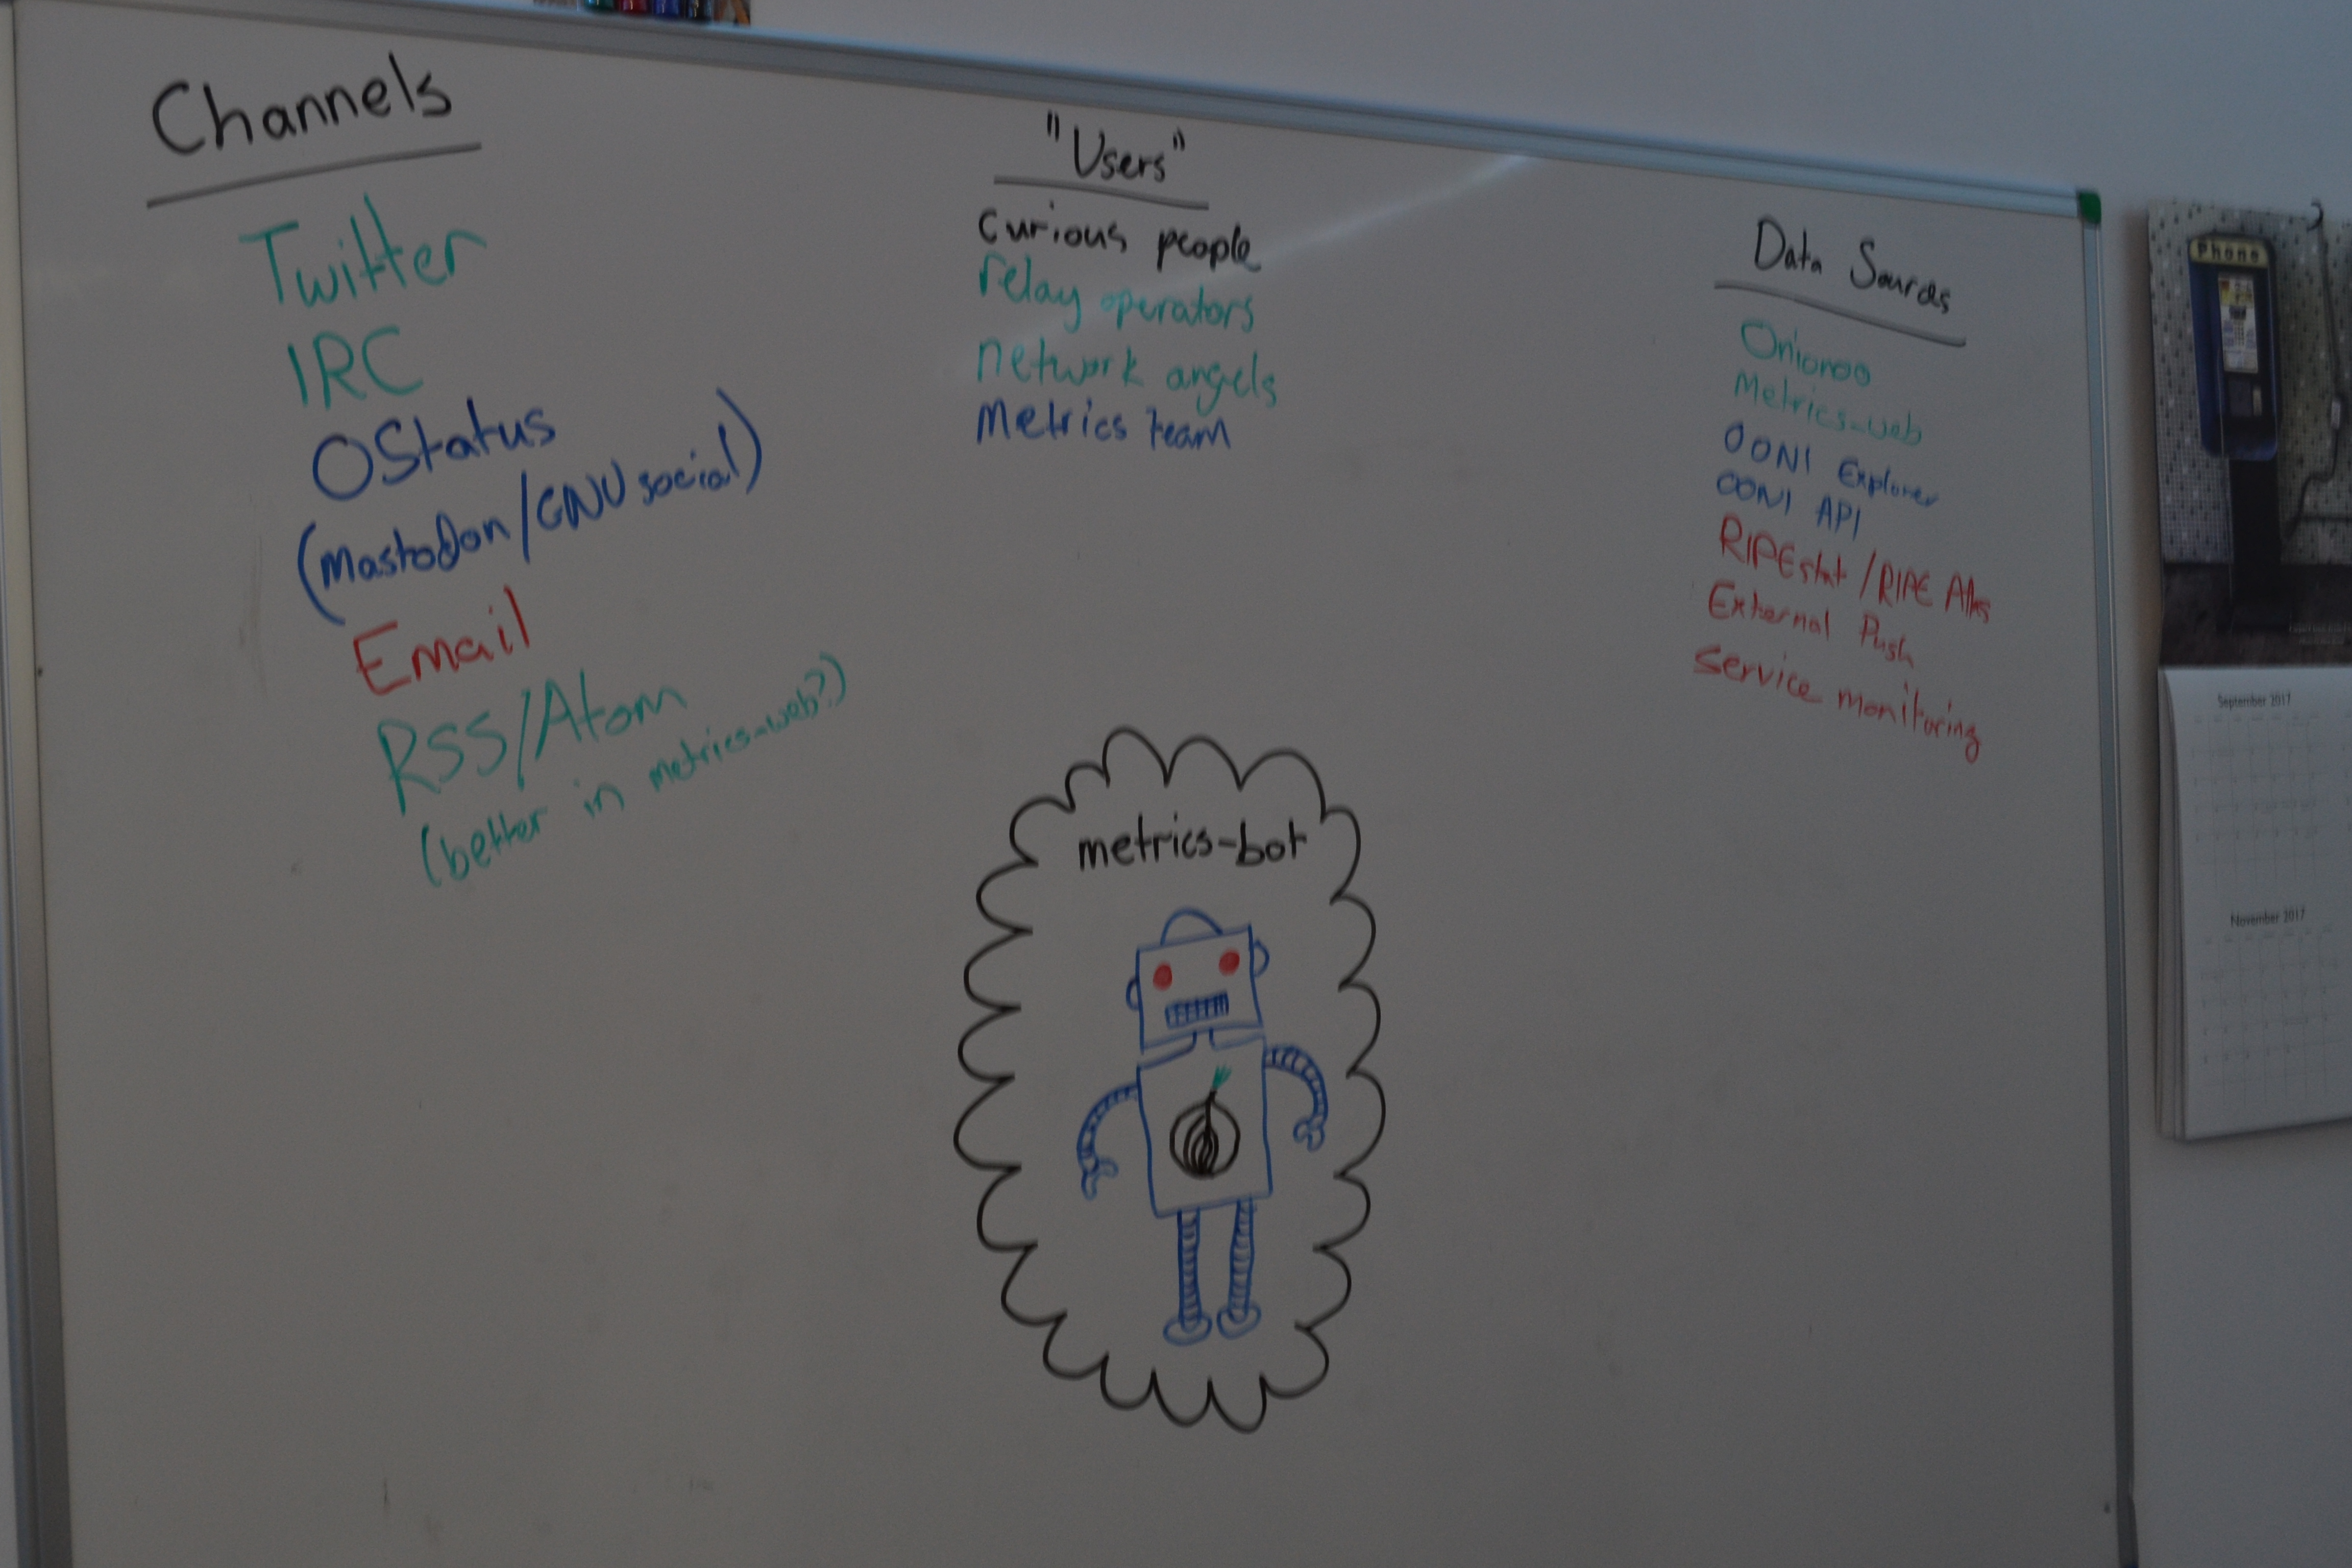 Channels
Twitter
IRC
OStatus
(Mastodon/GNU social)
Email
RSS/Atom
(better in metrics-web?)
"Users"
curious people
relay operators
network angels
Metrics team
Data Sources
Onionoo
Metrics-web
OONI Explorer
OONI API
RIPEstat / RIPE Atlas
External Push
Service monitoring
metrics-bot
Phone
September 2017
November 2017